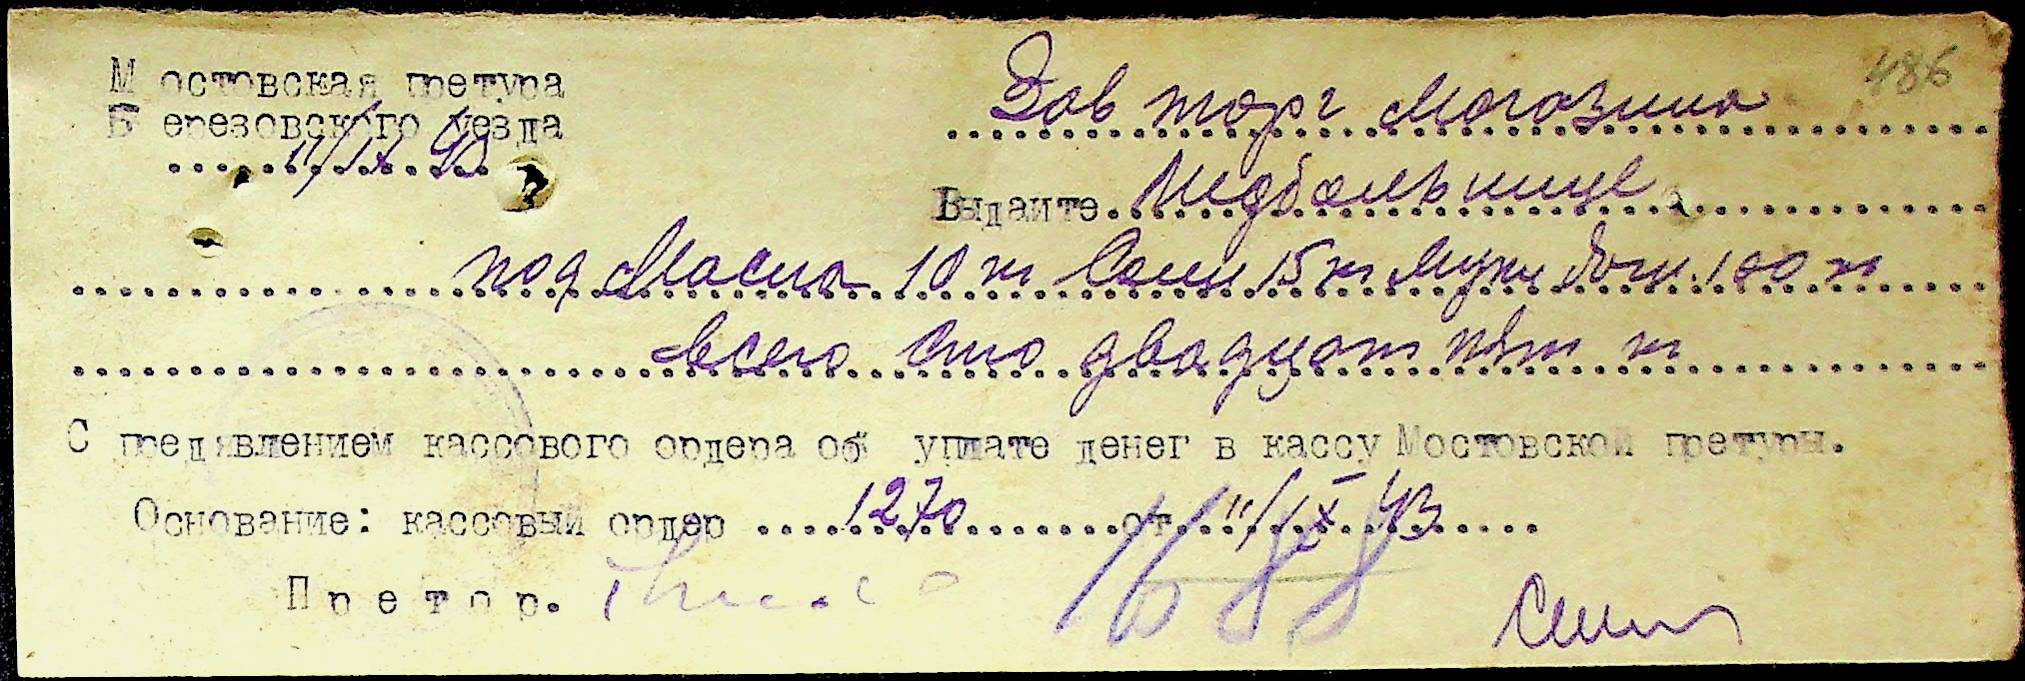 486
Мостовская претура
Березовского уезда
11/IX 43
Зав торг Магазина
Выдайте
под Масла 10 кг Соли 15 кг Муки 100 кг
всего сто двадцат пят кг
С предявлением кассового ордера об уплате денег в кассу Мостовской претуры.
Основание: кассовый ордер 1270 от 11/IX 43
Претор.
1688